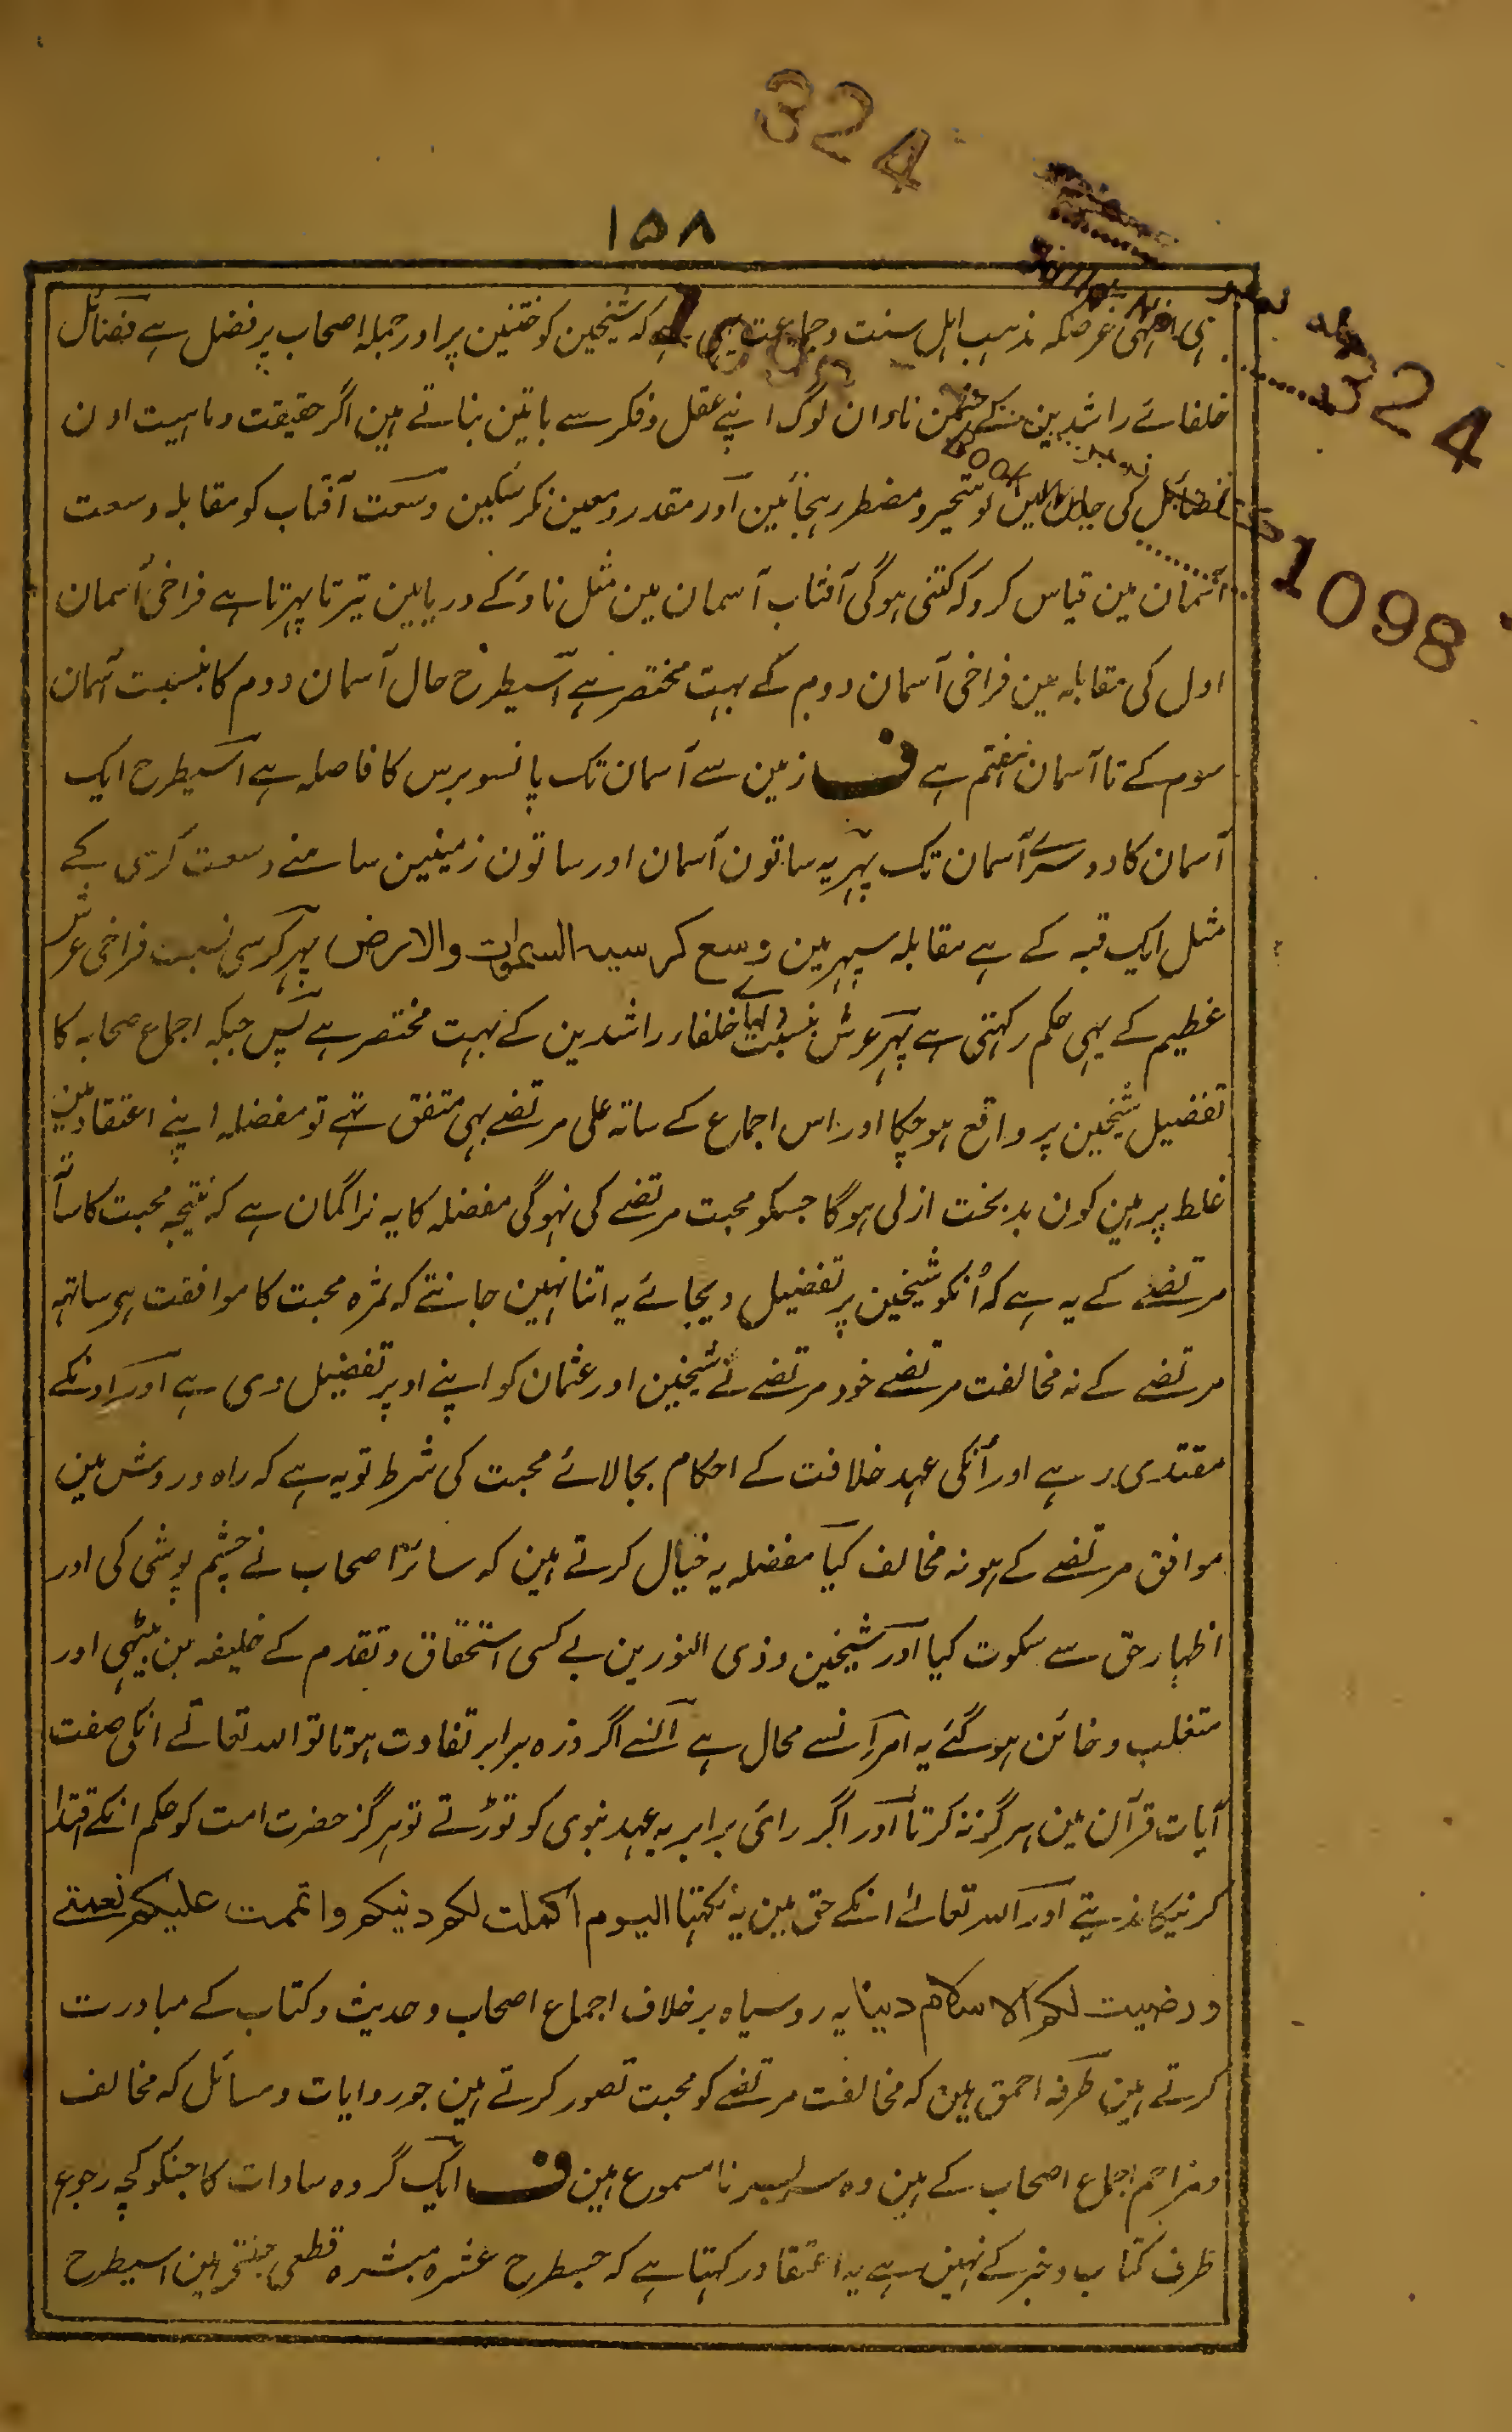 324
۱۵۸
ہی انتہی غرضکہ مذہب اہل سنت وجماعت یہی ہے کہ شیخین کو ختنین پر اور جملہ اصحاب پر فضل ہے فضائل
324
خلفائے راشدین کے جنمین نادان لوگ اپنے عقل وفکر سے باتین بناتے ہین اگر حقیقت وماہیت اون
فضائل کی جان لین تو متحیر ومضطر رہجائین اور مقدر ومعین نکر سکین وسعت آفتاب کو مقابلہ وسعت
1098
آسمان مین قیاس کرو کہ کتنی ہوگی آفتاب آسمان مین مثل ناؤ کے دریا مین تیرتا پہرتا ہے فراخی آسمان
اول کی مقابلہ مین فراخی آسمان دوم کے بہت مختصر ہے اسیطرح حال آسمان دوم کا بنسبت آسمان
سوم کے تا آسمان ہفتم ہے ف زمین سے آسمان تک پانسو برس کا فاصلہ ہے اسیطرح ایک
آسمان کا دوسرے آسمان تک پہر یہ ساتون آسمان اور ساتون زمینین سامنے وسعت کرسی کے
مثل ایک قبہ کے ہے مقابلہ سپہر مین وسع کرسیہ السموات والارض پہر کرسی نسبت فراخی عرش
عظیم کے یہی حکم رکہتی ہے پہر عرش بنسبت خلفاء راشدین کے بہت مختصر ہے پس جبکہ اجماع صحابہ کا
تفضیل شیخین پر واقع ہوچکا اور اس اجماع کے ساتہ علی مرتضے بہی متفق تہے تو مفضلہ اپنے اعتقاد مین
غلط پر ہین کون بدبخت ازلی ہوگا جسکو محبت مرتضے کی نہوگی مفضلہ کا یہ نرا گمان ہے کہ نتیجہ محبت کا ساتہ
مرتضے کے یہ ہے کہ اُنکو شیخین پر تفضیل دیجائے یہ اتنا نہین جانتے کہ ثمرہ محبت کا موافقت ہے ساتہہ
مرتضے کے نہ مخالفت مرتضے خود مرتضے نے شیخین اور عثمان کو اپنے اوپر تفضیل دی ہے اور اونکے
مقتدی رہے اور اُنکی عہد خلافت کے احکام بجا لائے محبت کی شرط تو یہ ہے کہ راہ وروش مین
موافق مرتضے کے ہو نہ مخالف کیا مفضلہ یہ خیال کرتے ہین کہ سائر اصحاب نے چشم پوشی کی اور
اظہار حق سے سکوت کیا اور شیخین وذی النورین بے کسی استحقاق وتقدم کے خلیفہ بن بیٹہی اور
متغلب وخائن ہوگئے یہ امر اِنسے محال ہے اُنسے اگر ذرہ برابر تفاوت ہوتا تو اللہ تعالے انکی صفت
آیات قرآن مین ہرگز نہ کرتا اور اگر رائی برابر یہ عہد نبوی کو توڑتے تو ہرگز حضرت امت کو حکم انکے اقتدا
کرنیکا ندیتے اور اللہ تعالے انکے حق مین یہ نکہتا الیوم اکملت لکم دینکم واتممت علیکم نعمتے
ورضیت لکم الاسلام دینا یہ روسیاہ برخلاف اجماع اصحاب وحدیث وکتاب کے مبادرت
کرتے ہین طرفہ احمق ہین کہ مخالفت مرتضے کو محبت تصور کرتے ہین جو روایات ومسائل کہ مخالف
ومزاحم اجماع اصحاب کے ہین وہ سربسر نامسموع ہین ف ایک گروہ سادات کا جنکو کچہ رجوع
طرف کتاب وخبر کے نہین ہے یہ اعتقاد رکہتا ہے کہ جسطرح عشرہ مبشرہ قطعی جنتی ہین اسیطرح